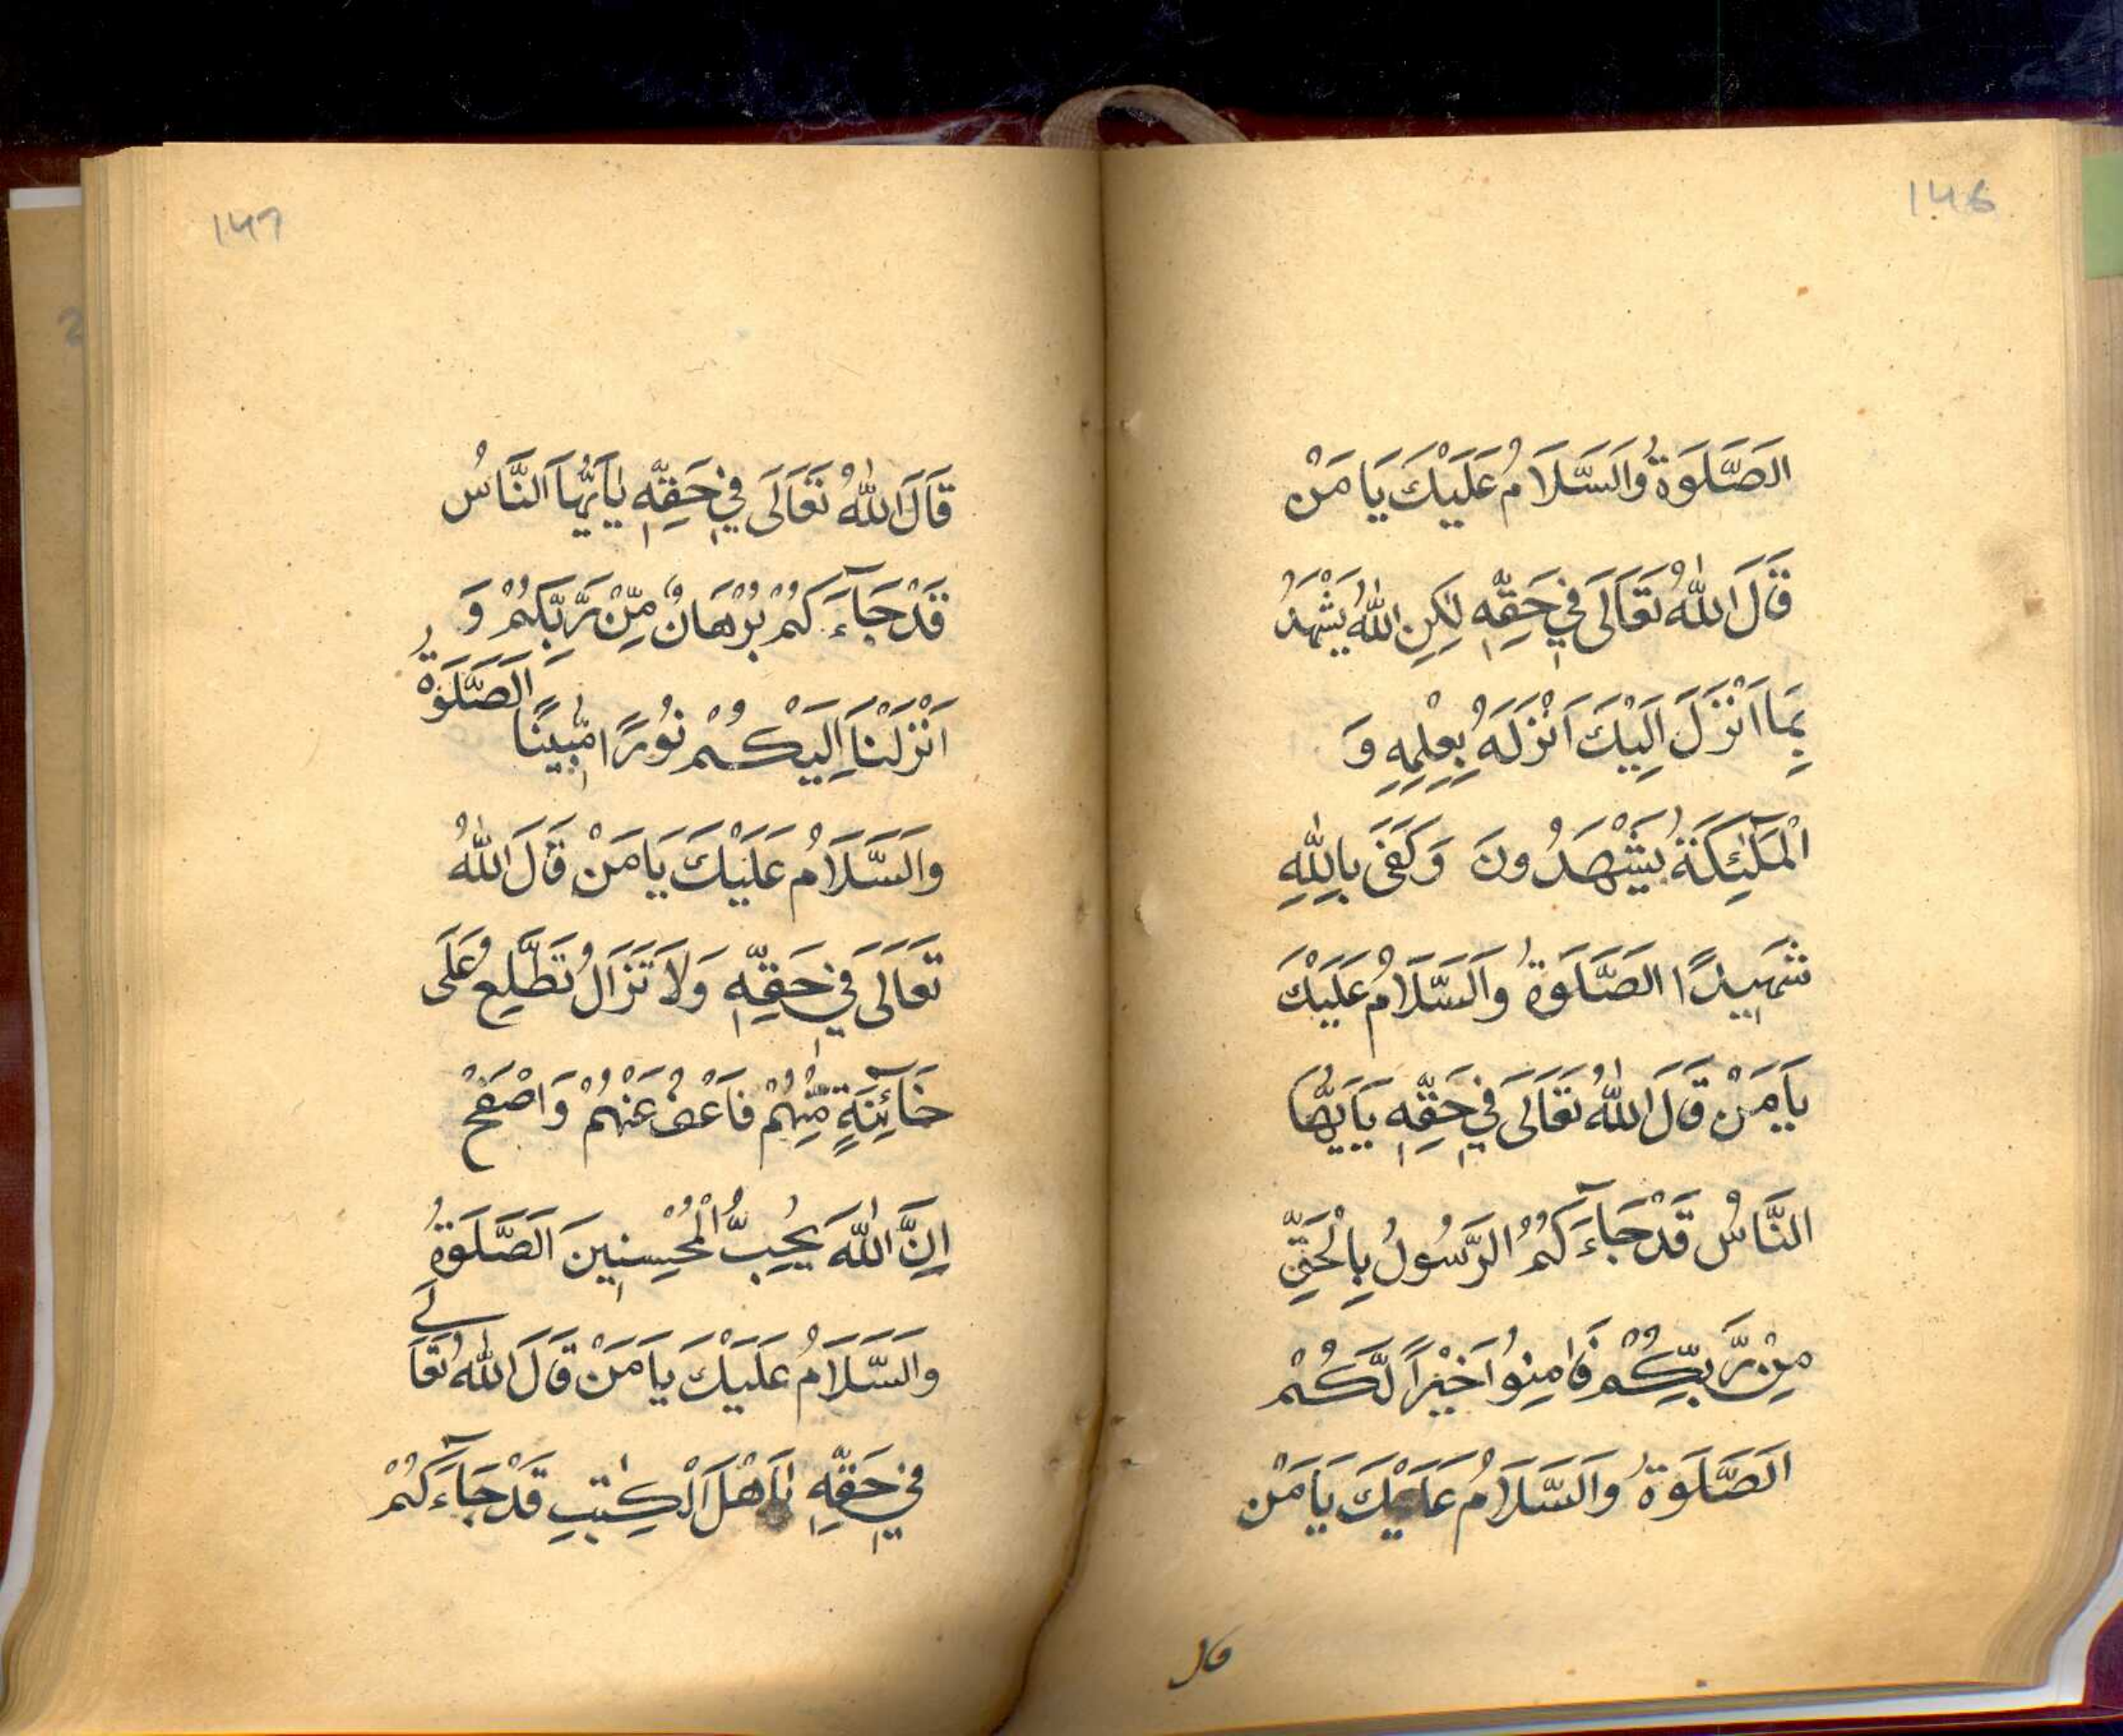 146
الصَّلَوةُ وَالسَّلَامُ عَلَيْكَ يَا مَنْ
قَالَ اللهُ تَعَالَى فِي حَقِّهٖ لٰكِنِ اللهُ يَشْهَدُ
بِمَا اَنْزَلَ اِلَيْكَ اَنْزَلَهُ بِعِلْمِهٖ وَ
الْمَلٰٓئِكَةُ يَشْهَدُونَ وَكَفَى بِاللهِ
شَهِيدًا الصَّلَوةُ وَالسَّلَامُ عَلَيْكَ
يَا مَنْ قَالَ اللهُ تَعَالَى فِي حَقِّهٖ يَاَيُّهَا
النَّاسُ قَدْ جَآءَكُمُ الرَّسُولُ بِالْحَقِّ
مِنْ رَّبِّكُمْ فَاٰمِنُوا خَيْرًا لَّكُمْ
اَلصَّلَوةُ وَالسَّلَامُ عَلَيْكَ يَا مَنْ
قال
147
قَالَ اللهُ تَعَالَى فِي حَقِّهٖ يٰاَيُّهَا النَّاسُ
قَدْ جَآءَكُمْ بُرْهَانٌ مِّنْ رَّبِّكُمْ وَ
اَنْزَلْنَا اِلَيْكُمْ نُورًا مُّبِينًا اَلصَّلَوةُ
وَالسَّلَامُ عَلَيْكَ يَا مَنْ قَالَ اللهُ
تَعَالَى فِي حَقِّهٖ وَلَا تَزَالُ تَطَّلِعُ عَلَى
خَآئِنَةٍ مِّنْهُمْ فَاعْفُ عَنْهُمْ وَاصْفَحْ
اِنَّ اللهَ يُحِبُّ الْمُحْسِنِينَ اَلصَّلَوةُ
وَالسَّلَامُ عَلَيْكَ يَا مَنْ قَالَ اللهُ تَعَالَے
فِي حَقِّهٖ يٰاَهْلَ الْكِتٰبِ قَدْ جَآءَكُمْ